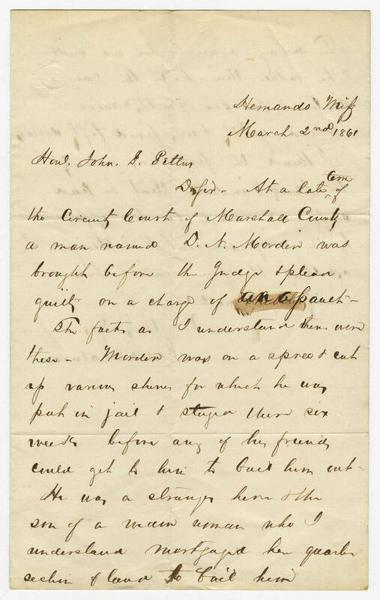 Hernando Miss
March 2nd 1861
Hon. John. J. Pettus
D. Sir. At a late term of
the Circuit Court of Marshall County
a man named D. N. Morden was
brought before the Judge & plead
guilty on a charge of an assault—
The facts as I understand them were
these— Morden was on a spree & cut
up various shines for which he was
put in jail & stayed there six
weeks before any of his friends
could get to him to bail him out—
He was a stranger here & the
son of a widow woman who I
understand mortgaged her quarter
section of land to bail him